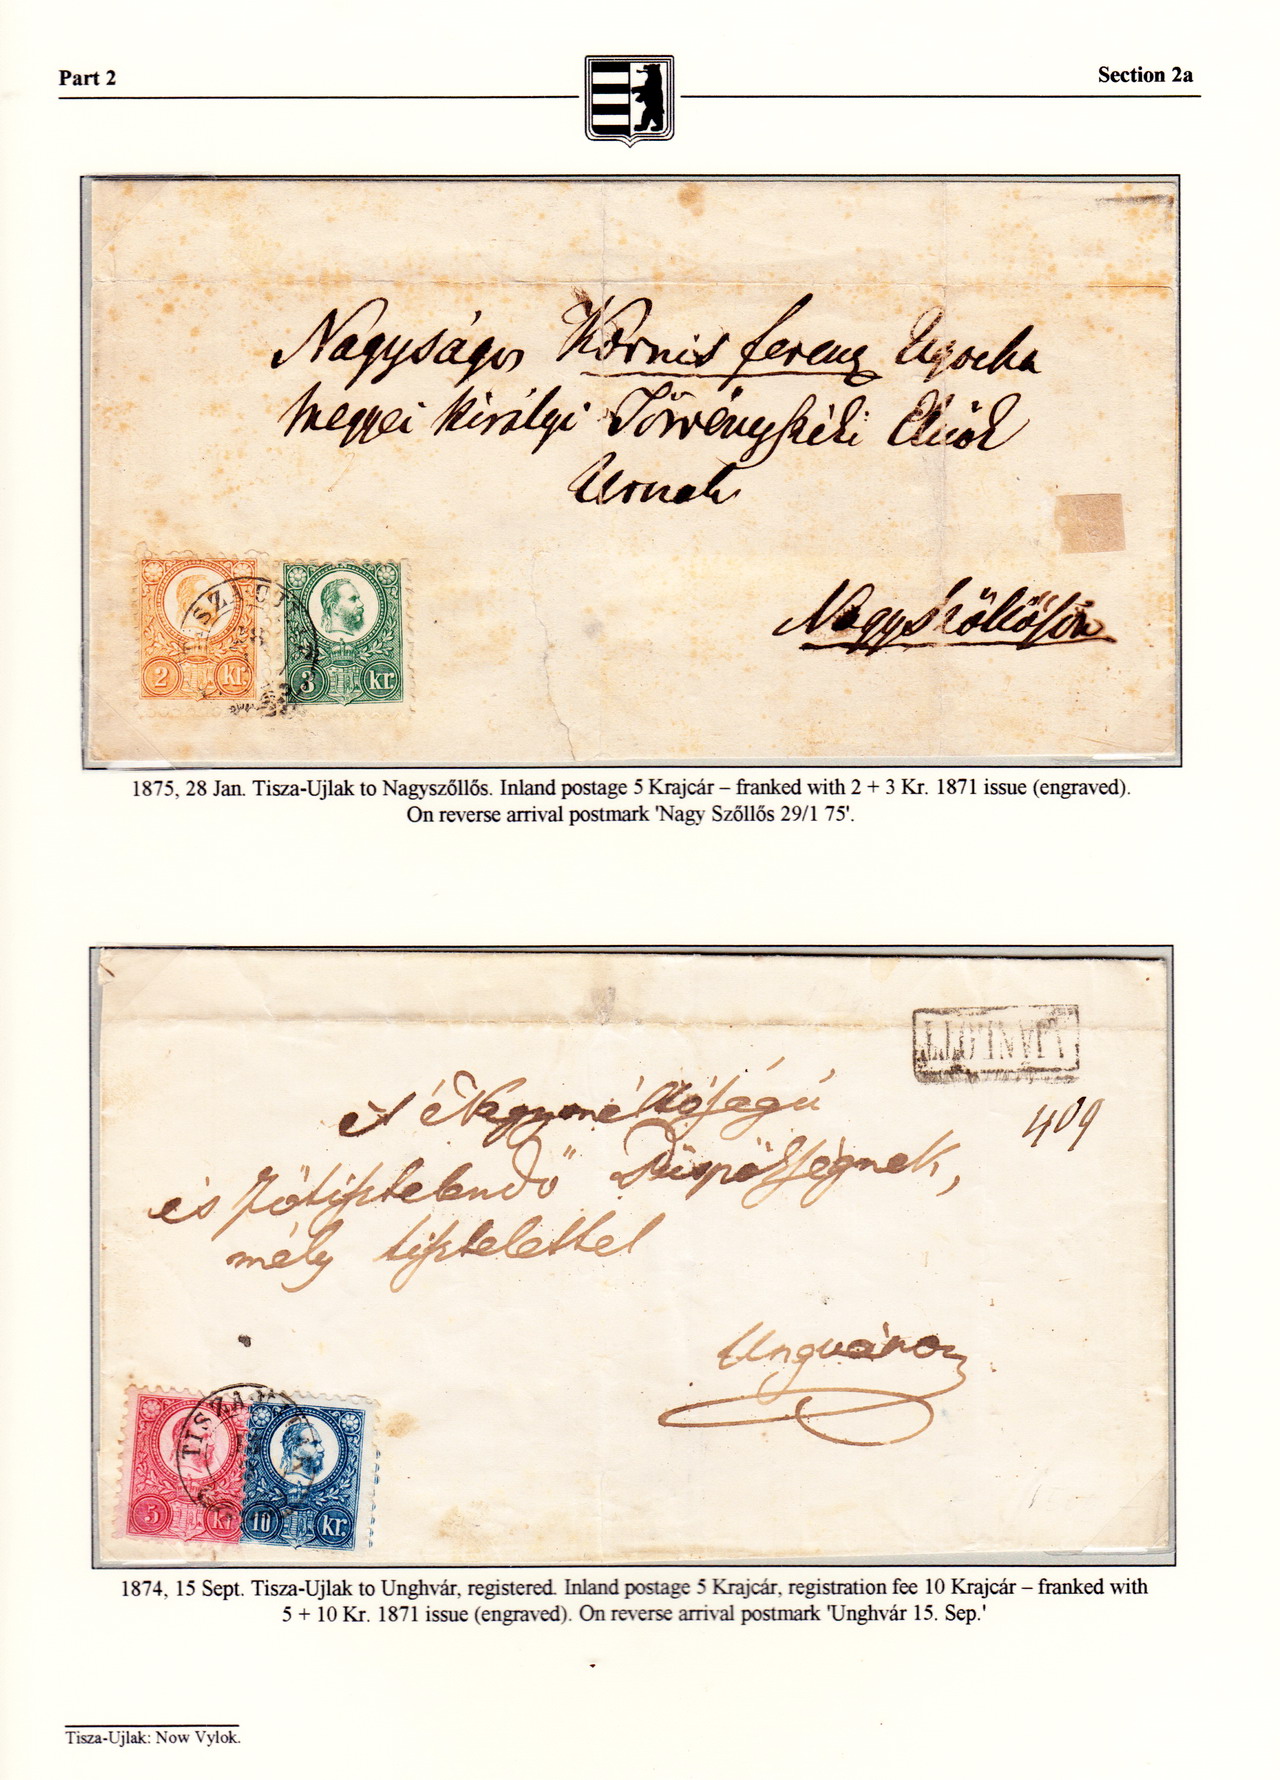 Part 2
Section 2a
Nagyságos Kornis ferenc Ugocha
megyei királyi Törvényszéki Elnök
Urnak
Nagyszőllősön
2 kr.
3 kr.
TISZA UJLAK
1875, 28 Jan. Tisza-Ujlak to Nagyszőllős. Inland postage 5 Krajcár – franked with 2 + 3 Kr. 1871 issue (engraved).
On reverse arrival postmark 'Nagy Szőllős 29/1 75'.
AJANLOTT
409
Nagyméltóságú
és Főtisztelendő Püspökségnek,
mély tisztelettel
Ungváron
TISZA UJLAK
5 kr
10 kr.
1874, 15 Sept. Tisza-Ujlak to Unghvár, registered. Inland postage 5 Krajcár, registration fee 10 Krajcár – franked with
5 + 10 Kr. 1871 issue (engraved). On reverse arrival postmark 'Unghvár 15. Sep.'
Tisza-Ujlak: Now Vylok.